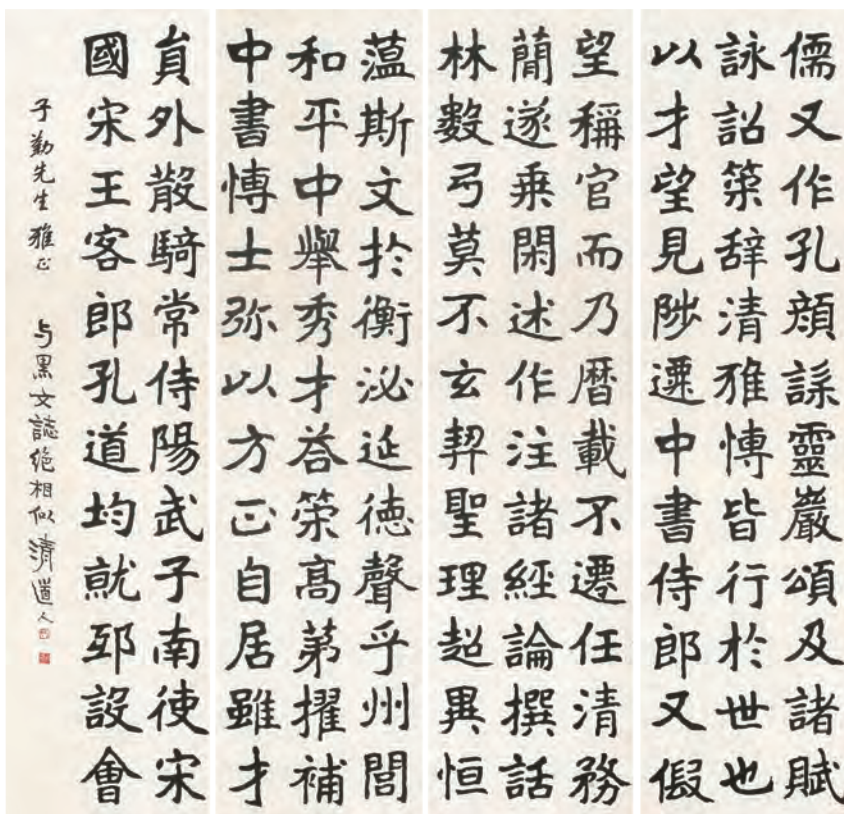 儒又作孔顏謡靈巖頌及諸賦
詠詔策辞清雅愽皆行於世也
以才望見陟遷中書侍郎又假
望稱官而乃曆載不遷任清務
蕳遂乗閑述作注諸經論撰話
林數弓莫不玄契聖理超異恒
藴斯文於衡泌延徳聲乎州閭
和平中舉秀才荅策高第擢補
中書愽士弥以方正自居雖才
貟外散騎常侍陽武子南使宋
國宋王客郎孔道均就邳設會
子勤先生雅正 与黑女誌絶相似 清道人